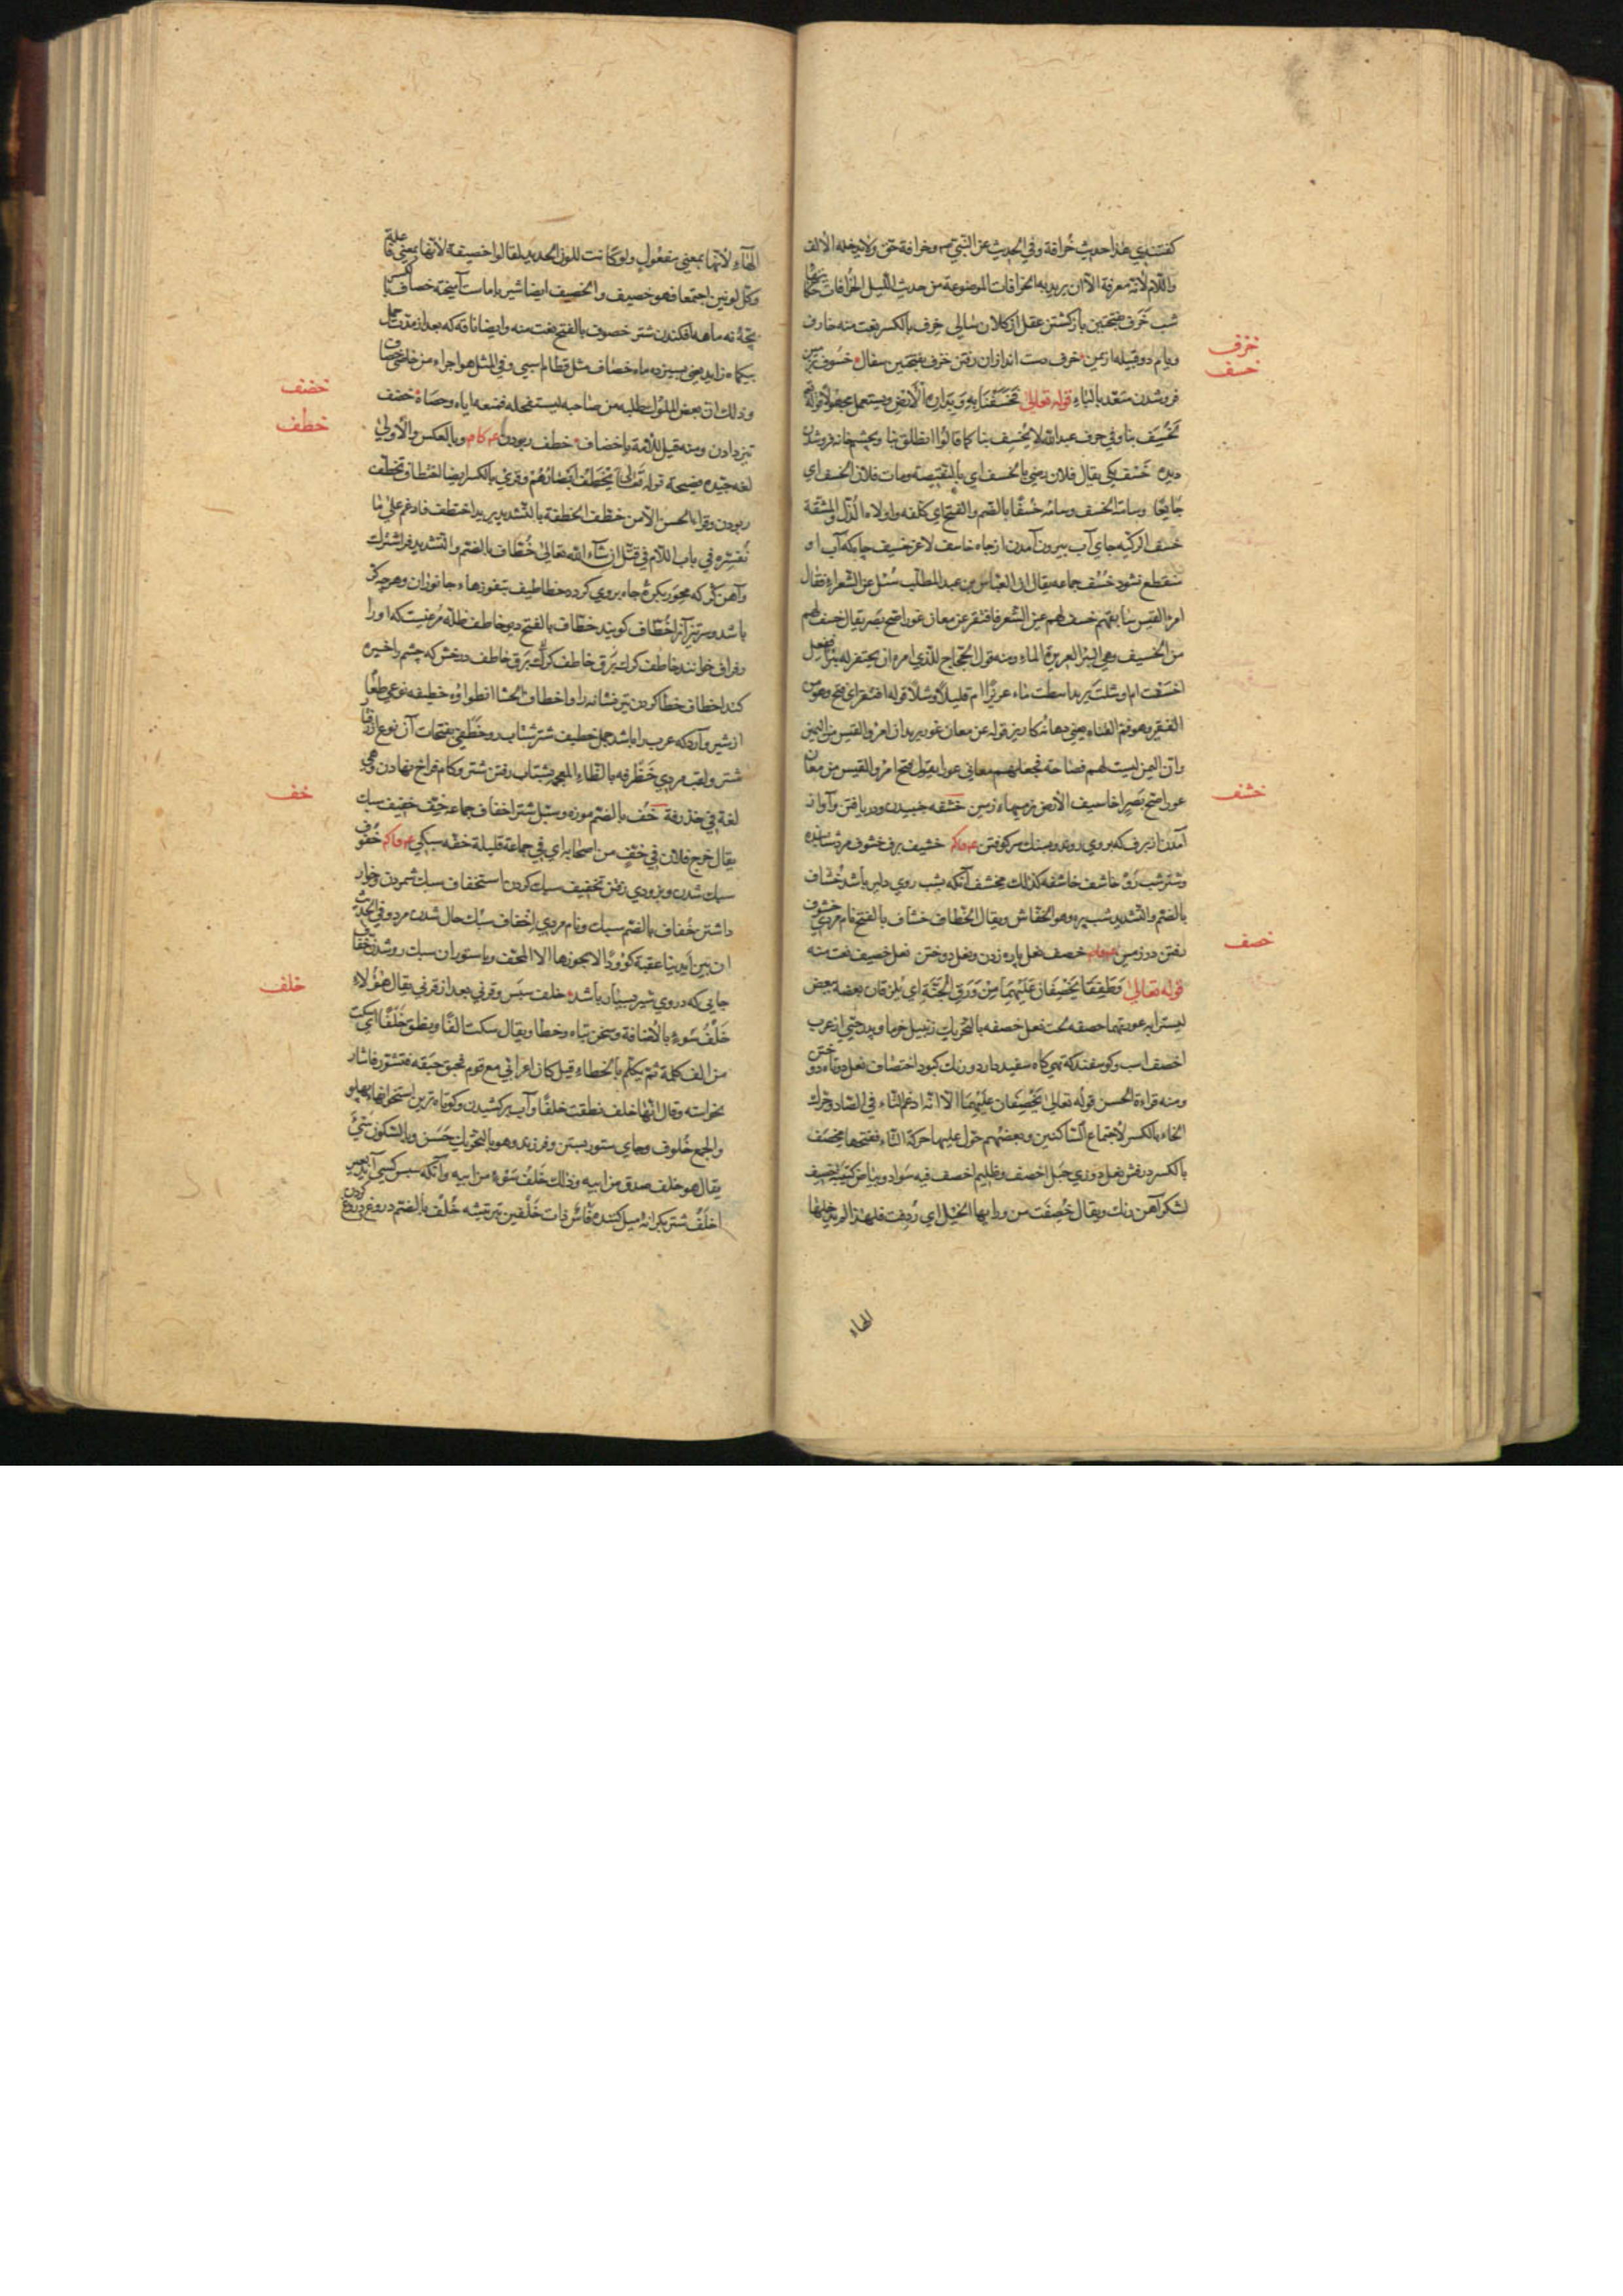 كفتندي هذا حديث خُرافة وفي الحديث عن النبي وخرافة حق ولا يدخله الالف
واللام لأنه معرفة الا ان يريد به الخرافات الموضوعة من حديث الليل
خَرَف بفتحتين باز كشتن عقل از كلان سالي خَرِف بالكسر نعت منه خارف
خزف
ونام دو قبيله از يمن خزف دست اندازان رفتن خزف بفتحتين سفال خسوف
خسف
فروشدن متعد بالباء قوله تعالى فَخَسَفْنَا بِهِ وَبِدَارِهِ الْأَرْضَ ويستعمل مجهولا
لَخُسِفَ بنا وفي حرف عبدالله لا نخُسِف بنا كما قالوا انطلق بنا وبچشم خانه فروشدن
ديده خَسْف يكي يقال فلان رضي بالخسف اي بالنقيصة وبات فلان الخسف اي
جايعًا وسامه الخسف وسامه خُسفًا بالضم والفتح اي كلفه واولاه الذل والمشقة
خسف الركيه جاي آب بيرون آمدن از چاه خاسف لاغر خسيف چاهكه آب او
منقطع نشود خُسُف جماعه يقال ان العباس بن عبد المطلب سُئل عن الشعراء فقال
امرؤ القيس سابقهم خسف لهم عين الشعر فافتقر عن معان عور اصح بصر يقال خسف لهم
من الخسيف وهي البئر الغزيرة الماء ومنه قول الحجاج للذي امره ان يحتفر له بئرا
اخسفت ام اوشلت يريد اسطت ماء غزيرًا ام قليلاً وشلاً قوله افتقر اي فتح وهو من
الفقير وهو فم القناه يعني دهانه كاريز قوله عن معان عور يريد ان امرؤ القيس من اليمن
وان اليمن ليست لهم فصاحة فجعل لهم معاني عورا يقول فتح امرؤ القيس من معان
خشف
عور اصح بصر اخاسيف الارض نرميهاء زمين خشفه جنبيدن ودر يافتن وآوازه
آمدن از برف كه بروي روند وبسنك سر كوفتن خشيف برف خشوف مرد
وشتر شب رَو خاشف خاشفه كذلك مخشف آنكه بشب روي دلير باشد خُشاف
بالضم والتشديد شب پره وهو الخفاش ويقال الخطاف خشاف بالفتح نام مردي خشوف
خصف
رفتن در زمين خصف نعل پاره زدن ونعل دوختن نعل خصيف نعت منه
قوله تعالى وَطَفِقَا يَخْصِفَانِ عَلَيْهِمَا مِنْ وَرَقِ الْجَنَّةِ اي يلزقان بعضه ببعض
ليسترا به عورتهما خصفه لخت نعل خصفه بالتحريك زنبيل خرما وپدر حيي از عرب
اخصف اسب وكوسفند كه تهي كاه سفيد دارد ورنك كبود اختصاف نعل دوتاه دوختن
ومنه قراءة الحسن قوله تعالى يَخِصِّفان عليهما الا انه ادغم التاء في الصاد وحرك
الخاء بالكسر لاجتماع الساكنين وبعضهم حول عليها حركة التاء ففتحها مخصف
بالكسر درفش نعل دوزي حبل اخصف وظليم اخصف فيه سواد وبياض كتيبة خصيف
لشكر آهن رنك ويقال خُصِفت من ورايها الخيل اي رُدِفت فلهذا لم يدخلها
الهاء
الهاء لأنها بمعنى مفعول ولو كانت للون الحديد لقالوا خصيفة لأنها بمعنى فاعلة
وكل لونين اجتمعا فهو خصيف والخصيف ايضا شير باماست آميخته خصاف
بچۀ نه ماهه افكندن شتر خصوف بالفتح نعت منه وايضا ناقه كه بعد از مدت حمل
بيكماه زايد يعني بسيزده ماه خصاف مثل قطام اسم اسبي وفي المثل هو اجراء من خاصي خصاف
خضف
وذلك ان بعض الملوك طلبه من صاحبه ليستفحله فمنعه اياه وخصاه خضف
خطف
تيز دادن ومنه قيل للأمة يا خضاف خطف ربودن وبالعكس والاولى
لغه جيده فصيحة قوله تعالى يَخْطَفُ أَبْصَارَهُمْ وقرئ بالكسر ايضا اختطاف وتخطف
ربودن وقراء الحسن الا من خطف الخطفة بالتشديد يريد اختطف فادغم على ما
نُفسّره في باب اللام في قتل ان شاء الله تعالى خُطّاف بالضم والتشديد فراشترك
وآهن كژ كه محور بكرۀ چاه بروي كردد خطاطيف پنفوزهاء جانوران وهرچه كژ
باشد وسرتيز آنرا خُطّاف كويند خطّاف بالفتح ديو خاطف ظله مرغيست كه اورا
رفراف خوانند خاطف كرك بَرَق خاطف درخش كه چشم را خيره
كند اخطاف خطا كردن تير نشانه را واخطاف الحشا انطواؤه خطيفه نوعي طعام
از شير وآرد كه عرب را باشد جمل خطيف شتر شتاب رو خَطَفي بفتحات آن نوع رفتار
شتر ولقب مردي خَظْرَفه بالظاء المعجمه بشتاب رفتن شتر وكام فراخ نهادن وهي
خف
لغة في خذرفة خُف بالضم موزه وسَبَل شتر اخفاف جماعه خِف خفيف سبك
يقال خرج فلان في خِفٍ من اصحابه اي في جماعة قليلة خفه سبكي خفوف
سبك شدن وبزودي رفتن تخفيف سبك كردن استخفاف سبك شمردن وخوار
داشتن خُفاف بالضم سبك ونام مردي اخفاف سبك حال شدن مرد وفي الحديث
ان بين ايدينا عقبة كؤودًا لا يجوزها الا المخف وباستوران سبك رو شدن خفان
خلف
جايي كه در وي شير بسيار باشد خلف سپس وقرني بعد از قرني يقال هؤلاء
خَلْفُ سَوءٍ بالاضافة وسخن تباه وخطا ويقال سكت الفًا ونطق خَلْفًا اي سكت
من الف كلمة ثم تكلم بالخطاء قيل كان اعرابي مع قوم فحبق حبقه فتشور فاشار
نحو استه وقال انها خلف نطقت خلفًا وآب بركشيدن وكوتاه ترين استخوانهاء پهلو
والجمع خُلوف وجاي ستور بستن وفرزند وهو بالتحريك حَسَن وبالسكون سَيّئ
يقال هو خلف صدق من ابيه وذلك خَلْفُ سَوءٍ من ابيه وآنكه سپس كسي آيد
اخلَفُ شتر بكرانه ميل كننده فأس ذات خَلْفين تبر تيشه خُلْف بالضم دروغ